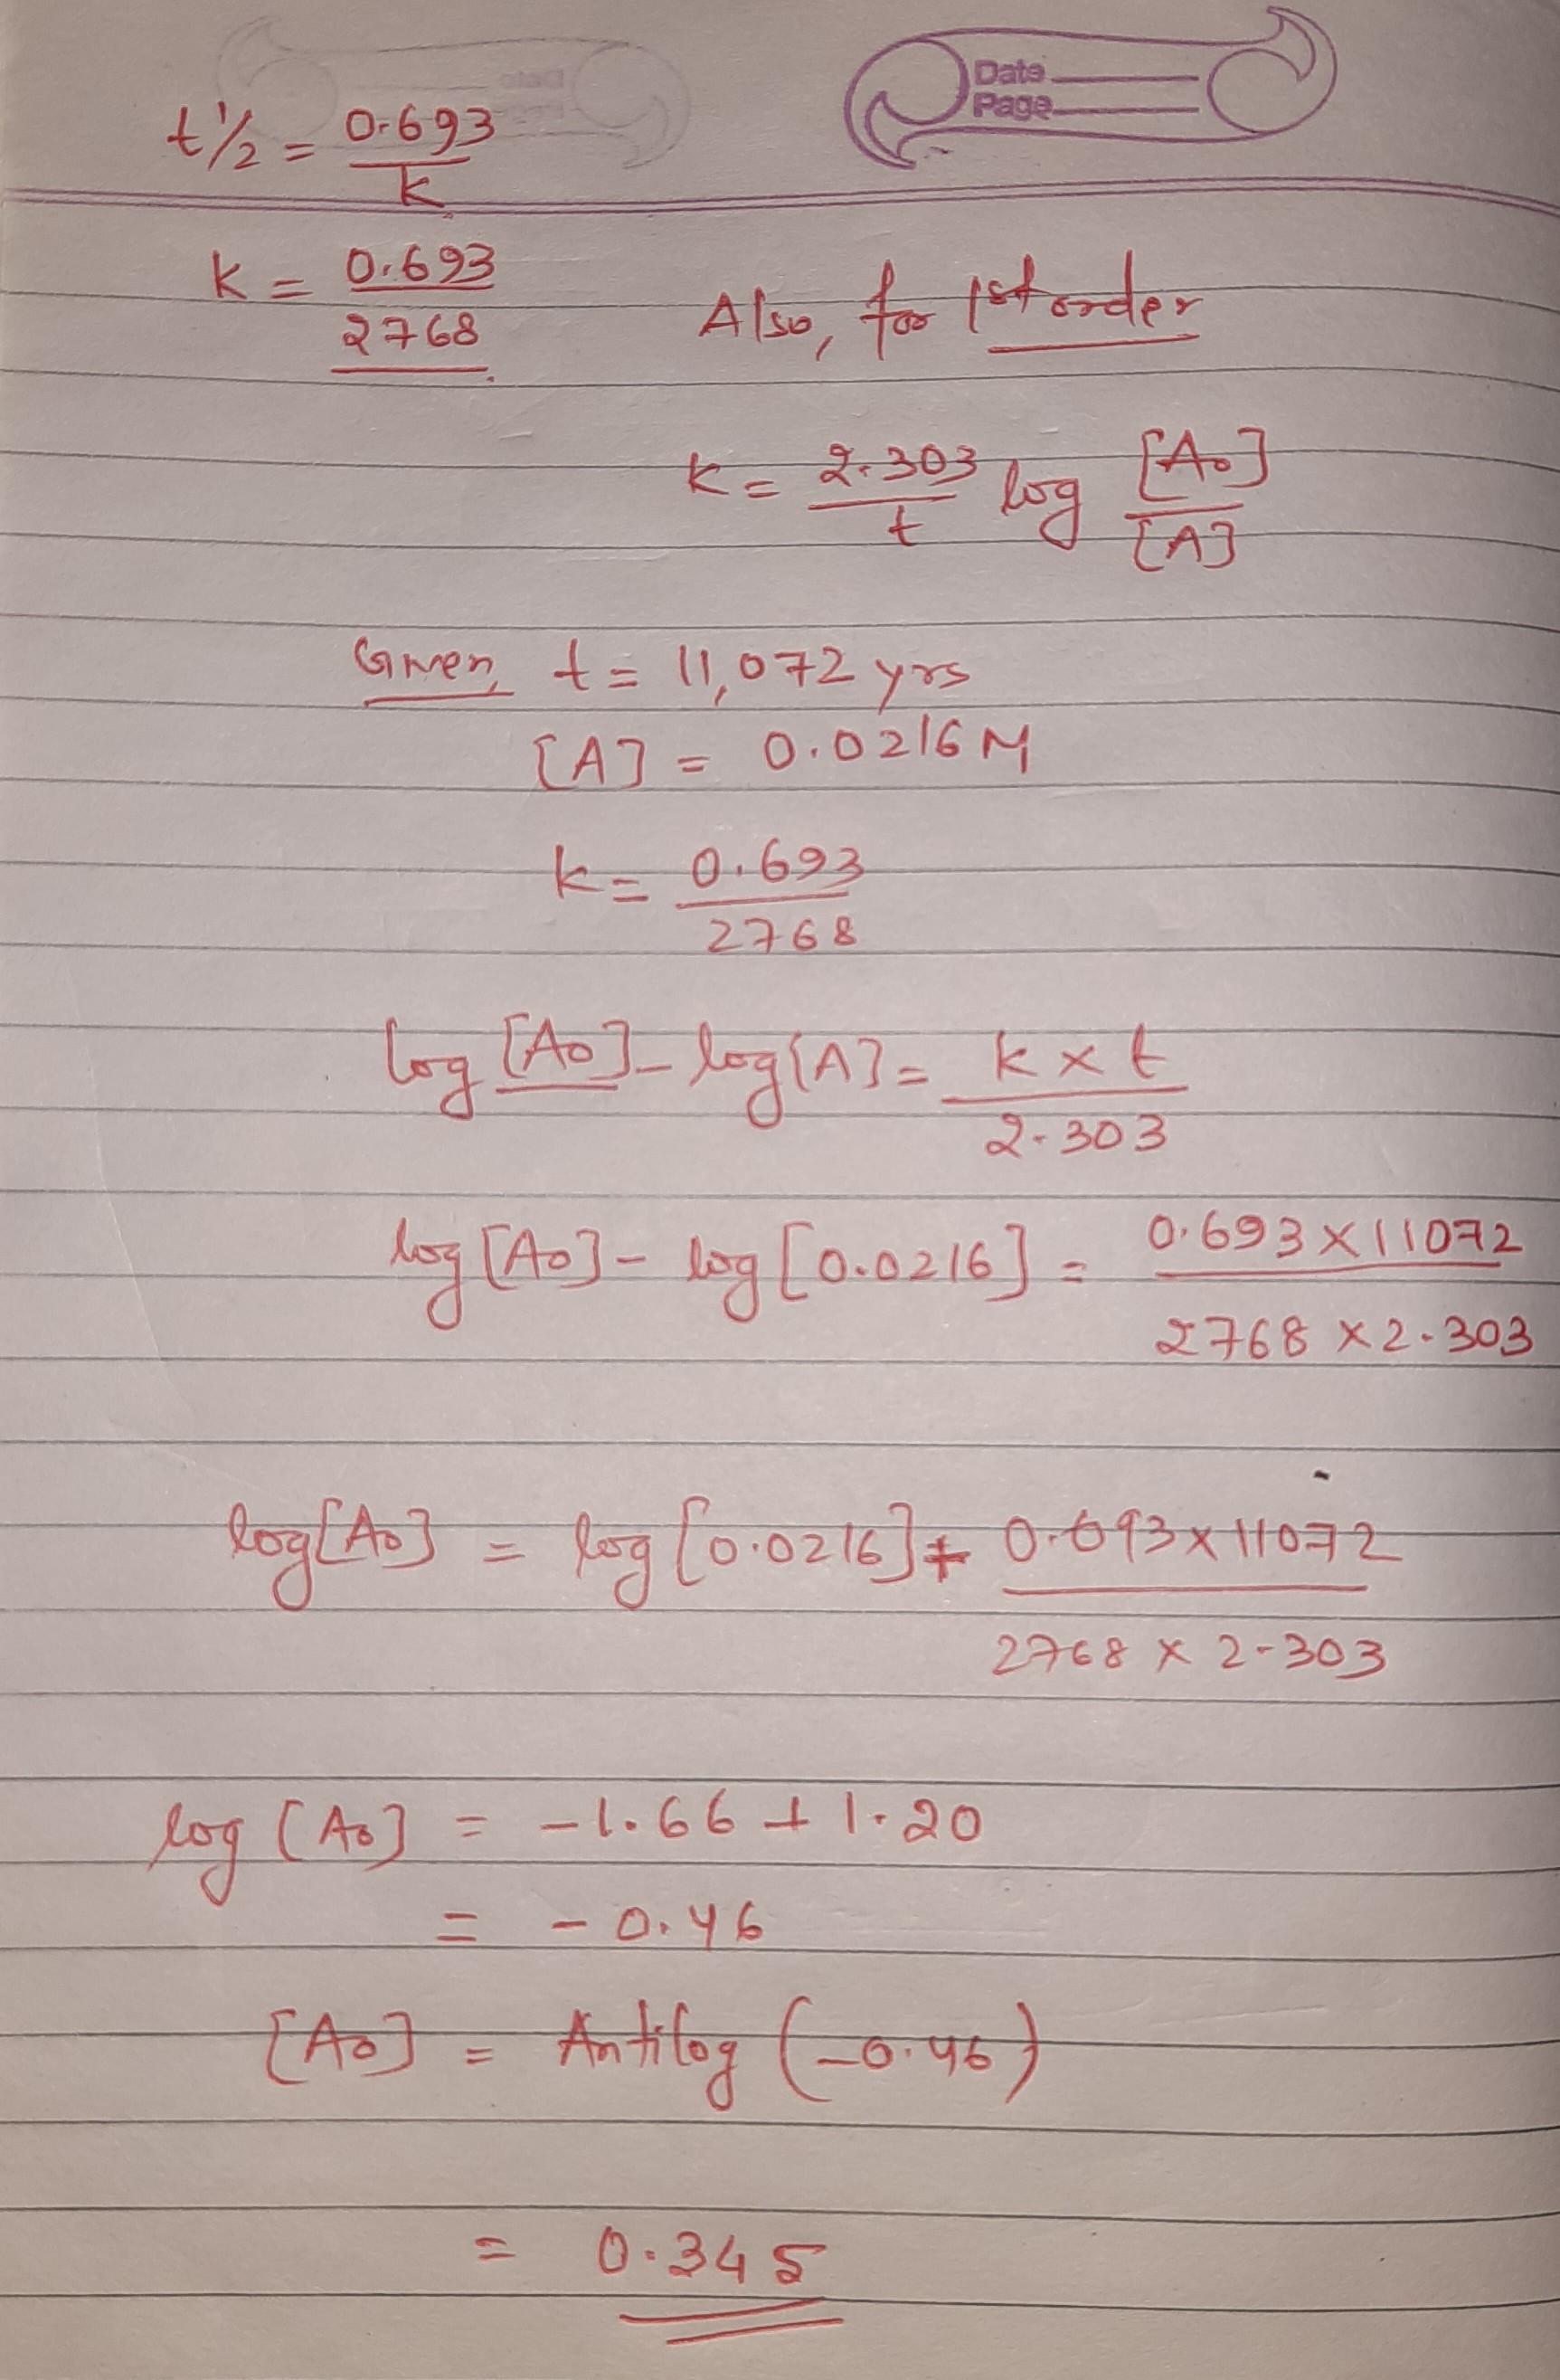 Date
Page
t1/2 = 0.693
k
K = 0.693
2768
Also, for 1st order
K = 2.303 log [A₀]
t [A]
Given, t = 11,072 yrs
[A] = 0.0216 M
k = 0.693
2768
log [A₀] - log [A] = k x t
2.303
log [A₀] - log [0.0216] = 0.693 x 11072
2768 x 2.303
log [A₀] = log [0.0216] + 0.693 x 11072
2768 x 2.303
log [A₀] = -1.66 + 1.20
= -0.46
[A₀] = Antilog (-0.46)
= 0.345